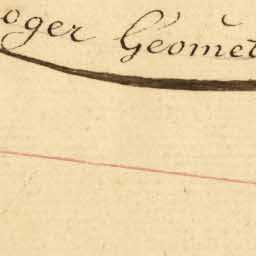 oger Géomet